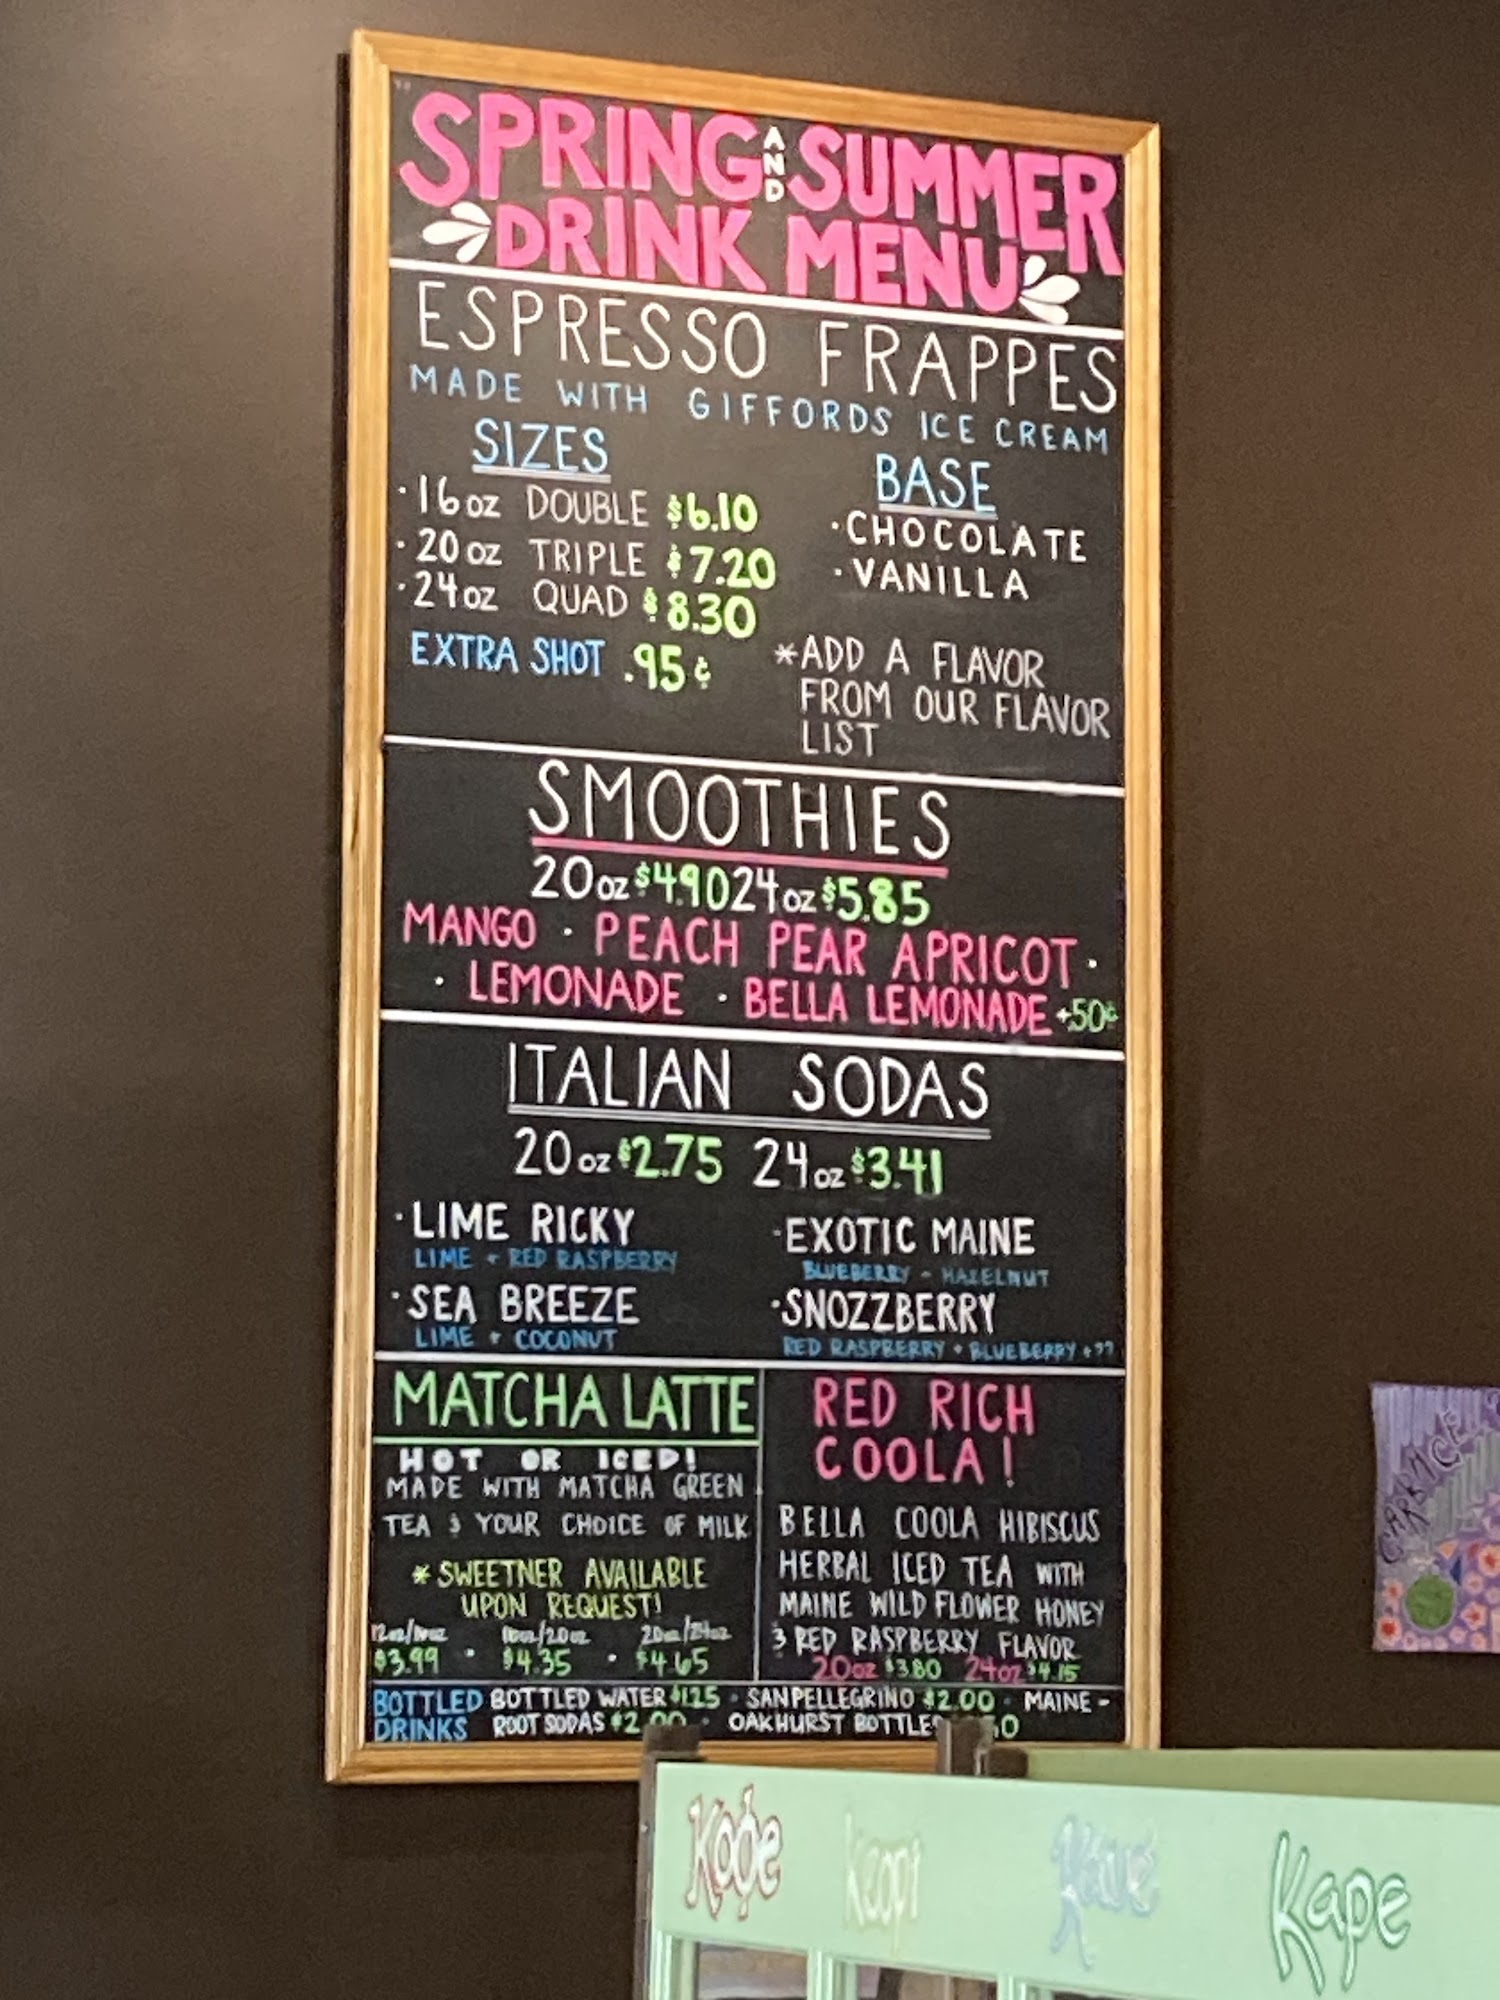 SPRING AND SUMMER
DRINK MENU
ESPRESSO FRAPPES
MADE WITH GIFFORDS ICE CREAM
SIZES
· 16oz DOUBLE $6.10
· 20oz TRIPLE $7.20
· 24oz QUAD $8.30
EXTRA SHOT .95¢
BASE
· CHOCOLATE
· VANILLA
*ADD A FLAVOR
FROM OUR FLAVOR
LIST
SMOOTHIES
20oz $4.90 24oz $5.85
MANGO · PEACH PEAR APRICOT ·
· LEMONADE · BELLA LEMONADE +.50¢
ITALIAN SODAS
20oz $2.75 24oz $3.41
· LIME RICKY
LIME + RED RASPBERRY
· SEA BREEZE
LIME + COCONUT
· EXOTIC MAINE
BLUEBERRY + HAZELNUT
· SNOZZBERRY
RED RASPBERRY + BLUEBERRY + ??
MATCHA LATTE
HOT OR ICED!
MADE WITH MATCHA GREEN
TEA & YOUR CHOICE OF MILK
* SWEETNER AVAILABLE
UPON REQUEST!
12oz/16oz 16oz/20oz 20oz/24oz
$3.99 · $4.35 · $4.65
RED RICH
COOLA!
BELLA COOLA HIBISCUS
HERBAL ICED TEA WITH
MAINE WILD FLOWER HONEY
& RED RASPBERRY FLAVOR
20oz $3.80 24oz $4.15
BOTTLED
DRINKS
BOTTLED WATER $1.25 · SANPELLEGRINO $2.00 · MAINE-
ROOT SODAS $2.00 · OAKHURST BOTTLES
Kape